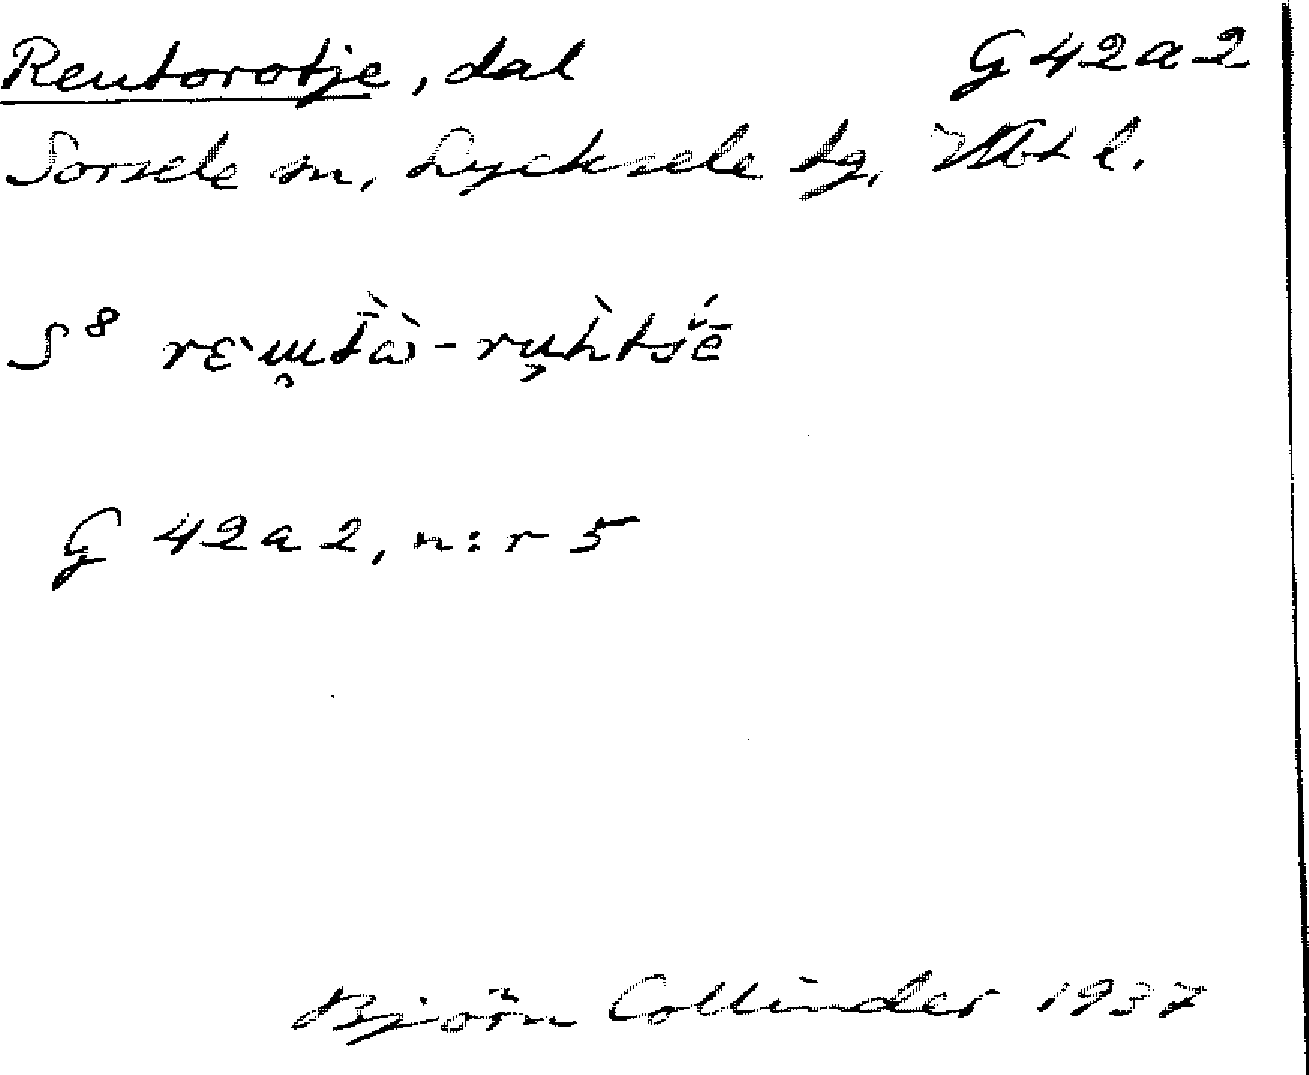 Reutorotje, dal G 42a2
Sorsele sn, Lycksele tg, Vbt l.
S⁸
G 42a2, n:r 5
Björn Collinder 1937